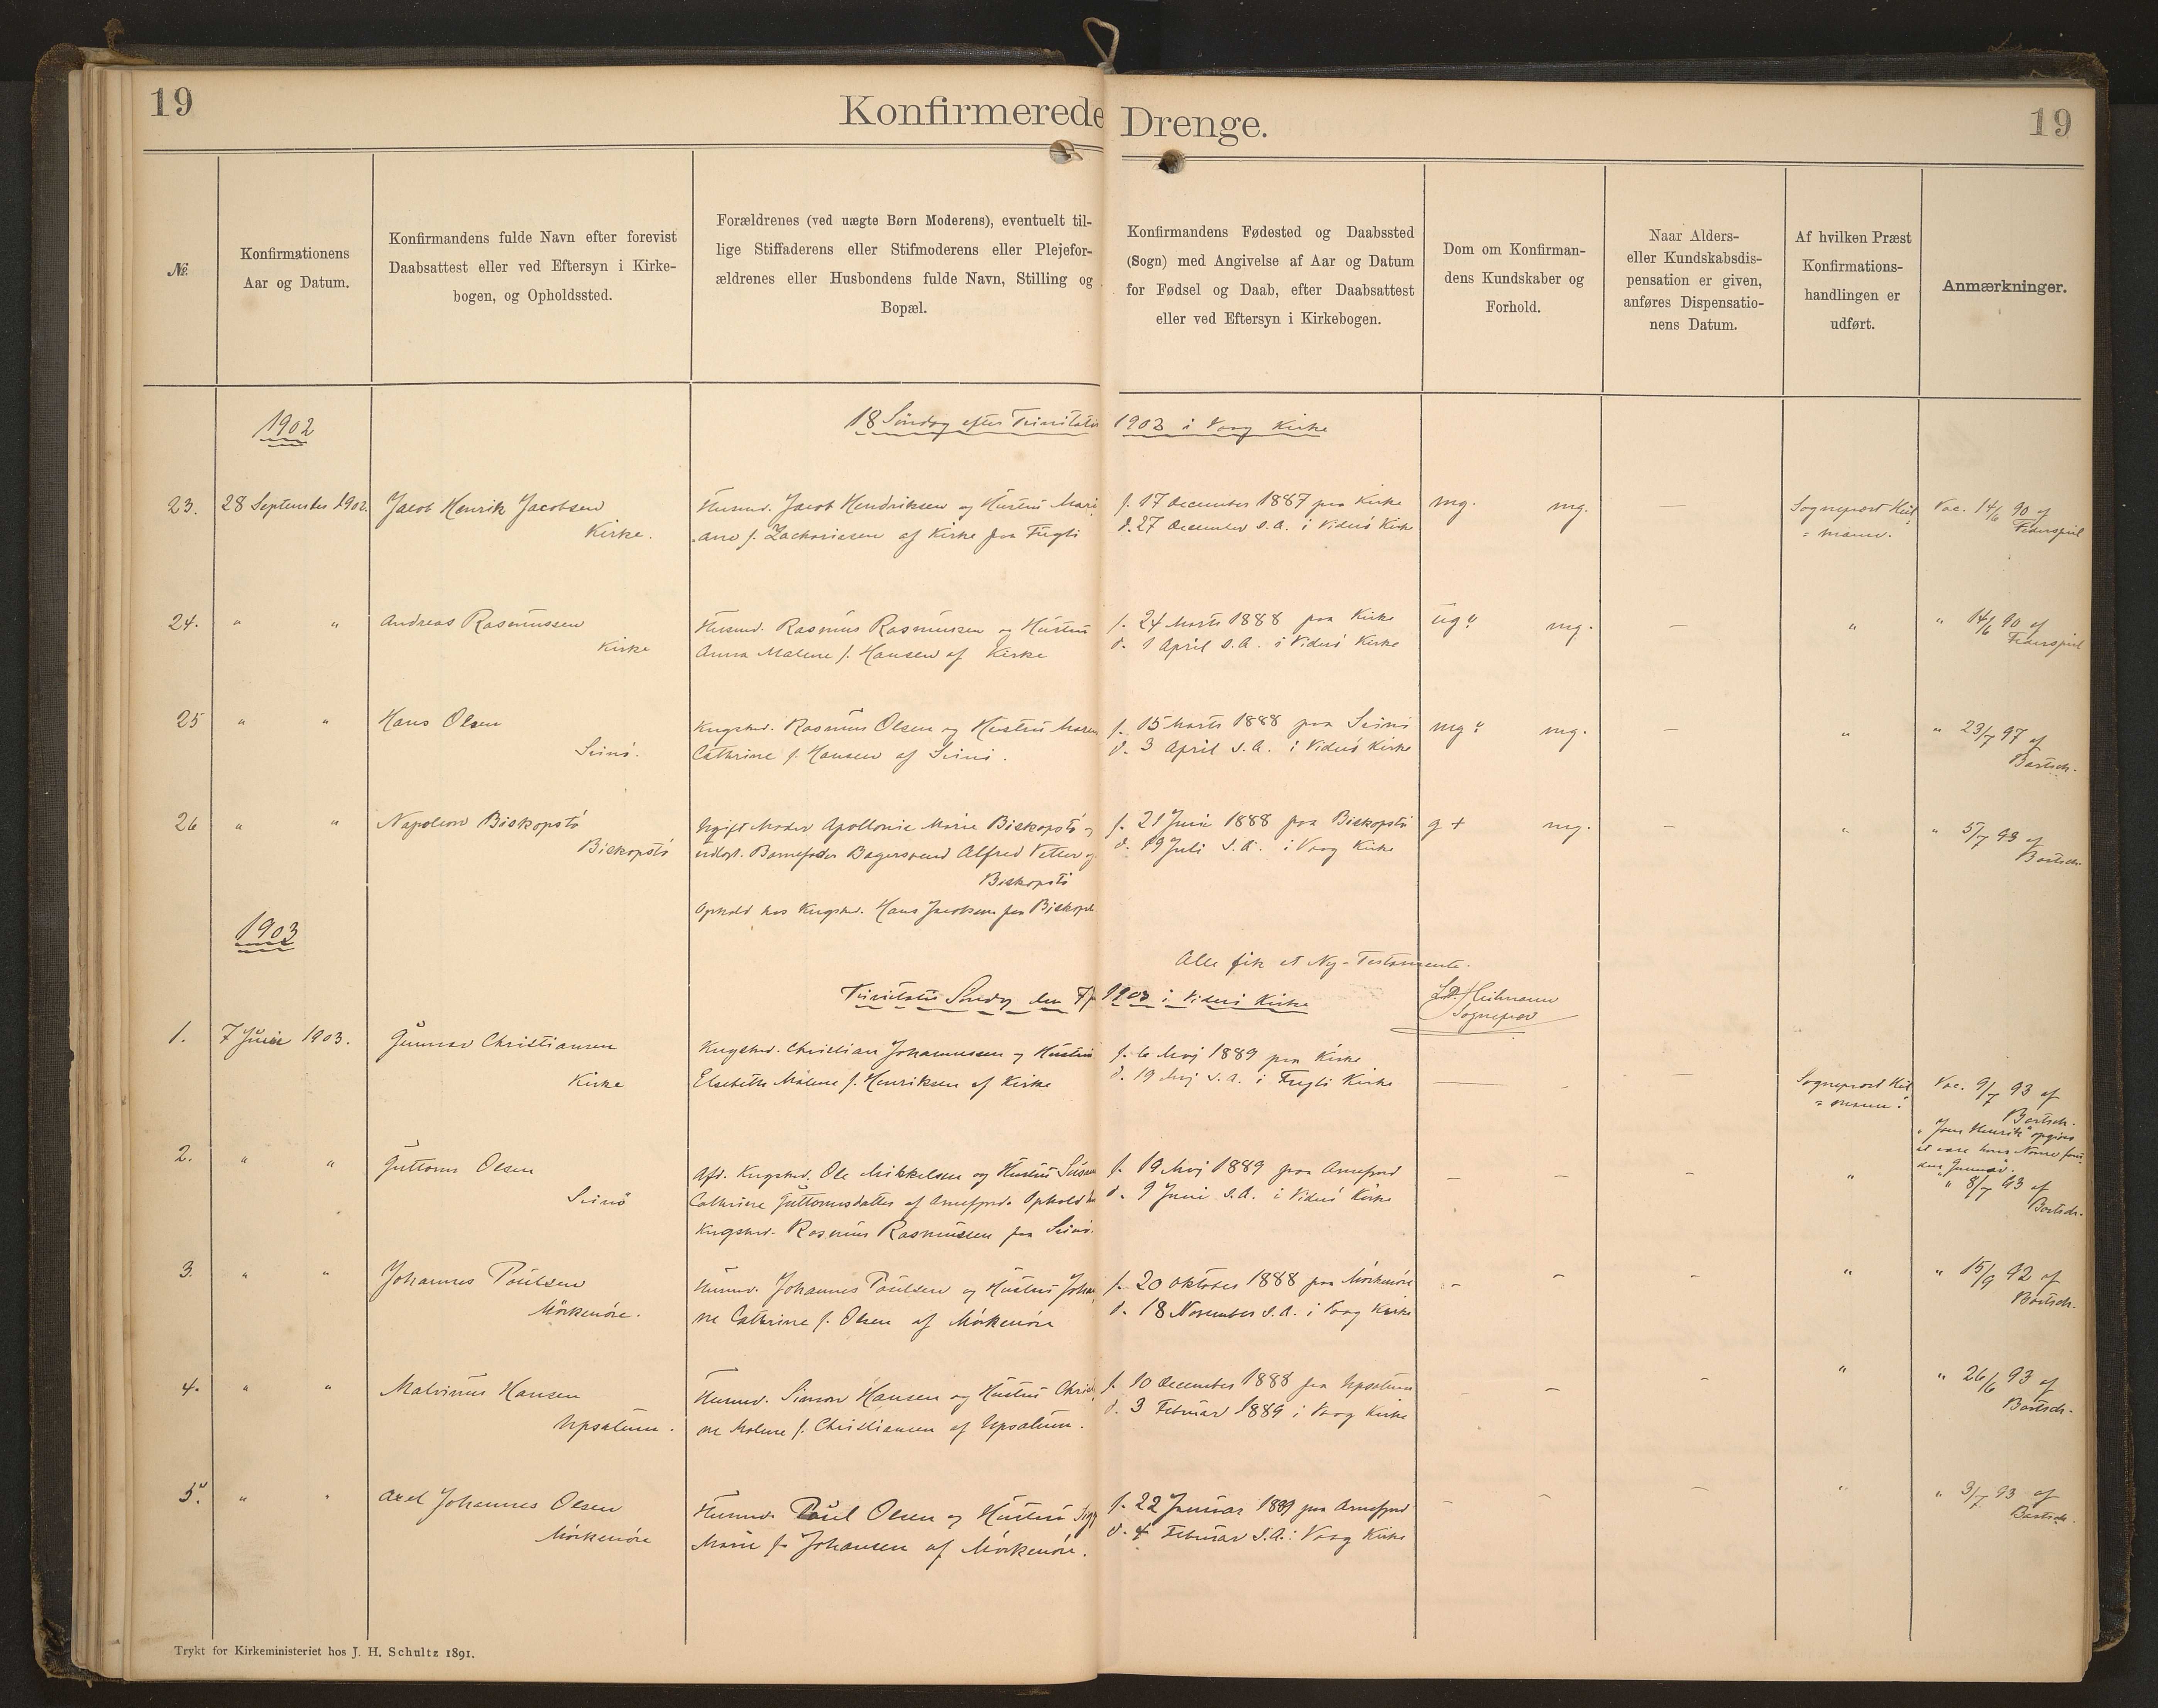 19
Konfirmerede Drenge.
19
№
Konfirmationens
Aar og Datum.
Konfirmandens fulde Navn efter forevist
Daabsattest eller ved Eftersyn i Kirke-
bogen, og Opholdssted.
Forældrenes (ved uægte Børn Moderens), eventuelt til-
lige Stiffaderens eller Stifmoderens eller Plejefor-
ældrenes eller Husbondens fulde Navn, Stilling og
Bopæl.
Konfirmandens Fødested og Daabssted
(Sogn) med Angivelse af Aar og Datum
for Fødsel og Daab, efter Daabsattest
eller ved Eftersyn i Kirkebogen.
Dom om Konfirman-
dens Kundskaber og
Forhold.
Naar Alders-
eller Kundskabsdis-
pensation er given,
anføres Dispensatio-
nens Datum.
Af hvilken Præst
Konfirmations-
handlingen er
udført.
Anmærkninger.
1902
18 Søndag efter Trinitatis 1902 i Vaag Kirke
23. 28 September 1902. Jacob Henrik Jacobsen
Kirke.
Husmd. Jacob Hendriksen og Hustru Mari
ane f. Zachariasen af Kirke paa Fuglö
f. 17 December 1887 paa Kirke
d. 27 December s.A. i Viderö Kirke
mg. mg. —
Sogneprest Heil
= mann.
Vac. 14/6 90 af
Federspiel
24. " " Andreas Rasmussen
Kirke
Husmd. Rasmus Rasmussen og Hustru
Anna Malene f. Hansen af Kirke
f. 24 Marts 1888 paa Kirke
d. 1 April s.A. i Viderö Kirke
ug÷ mg. — "
" 14/6 90 af
Federspiel
25 " " Hans Olsen
Svinö.
Kngsbd. Rasmus Olsen og Hustru Maren
Cathrine f. Hansen af Svinö.
f. 15 Marts 1888 paa Svinö
d. 3 April s.A. i Viderö Kirke
mg÷ mg. — "
" 23/7 97 af
Bartsch.
26 " " Napoleon Biskopstö
Biskopstö
Ugift Moder Apollonie Marie Biskopstö og
udlagt Barnefader Bagersvend Alfred Petter
Biskopstö
Ophold hos Kngsbd. Hans Jacobsen paa Biskopst
f. 21 Juni 1888 paa Biskopstö
d. 19 Juli s.A. i Vaag Kirke
g+ mg. — "
" 5/7 93 af
Bartsch.
1903
Alle fik et Ny-Testamente.
Trinitatis Søndag den 7 1903 i Viderö Kirke
Heilmann
Sogneprest
1. 7 Juni 1903. Gunnar Christiansen
Kirke
Kngsbd. Christian Johannessen og Hustru
Elsebeth Malene f. Henriksen af Kirke
f. 6 Maj 1889 paa Kirke
d. 19 Maj s.A. i Fuglö Kirke
— — —
Sogneprest Heil
= mann.
Vac. 9/7 93 af
Bartsch.
"Jens Henrik" opgives
at være hans Navne foru-
den Gunnar.
2. " " Guttorm Olsen
Svinö
Afd. Kngsbd. Ole Mikkelsen og Hustru Susan
Cathrine Guttormsdatter af Arnefjord. Ophold
Kngsbd. Rasmus Rasmussen paa Svinö.
f. 19 Maj 1889 paa Arnefjord
d. 9 Juni s.A. i Viderö Kirke
— — — "
" 8/7 93 af
Bartsch.
3. " " Johannes Poulsen
Mörkenöre.
Husmd. Johannes Poulsen og Hustru Johan
ne Cathrine f. Olsen af Mörkenöre
f. 20 Oktober 1888 paa Mörkenöre
d. 18 November s.A. i Vaag Kirke
— — — "
" 15/9 92 af
Bartsch.
4. " " Malvinus Hansen
Upsalum.
Husmd. Simon Hansen og Hustru Christi
ne Malene f. Christiansen af Upsalum.
f. 10 December 1888 paa Upsalum
d. 3 Februar 1889 i Vaag Kirke
— — — "
" 26/6 93 af
Bartsch.
5. " " Axel Johannes Olsen
Mörkenöre
Husmd. Poul Olsen og Hustru Sigg
Marie f. Johansen af Mörkenöre.
f. 22 Januar 1889 paa Arnefjord
d. 4 Februar s.A. i Vaag Kirke
— — — "
" 3/7 93 af
Bartsch.
Trykt for Kirkeministeriet hos J. H. Schultz 1891.